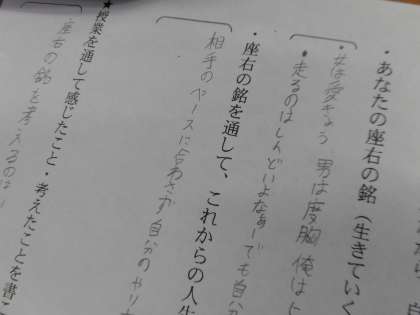 ・あなたの座右の銘（生きていく
・女は愛きょう 男は度胸 俺は
・走るのはしんどいよなぁーでも自分
・座右の銘を通して、これからの人生
相手のペースに合わさず自分のやり
★授業を通して感じたこと・考えたことを書
・座右の銘を考えるのは